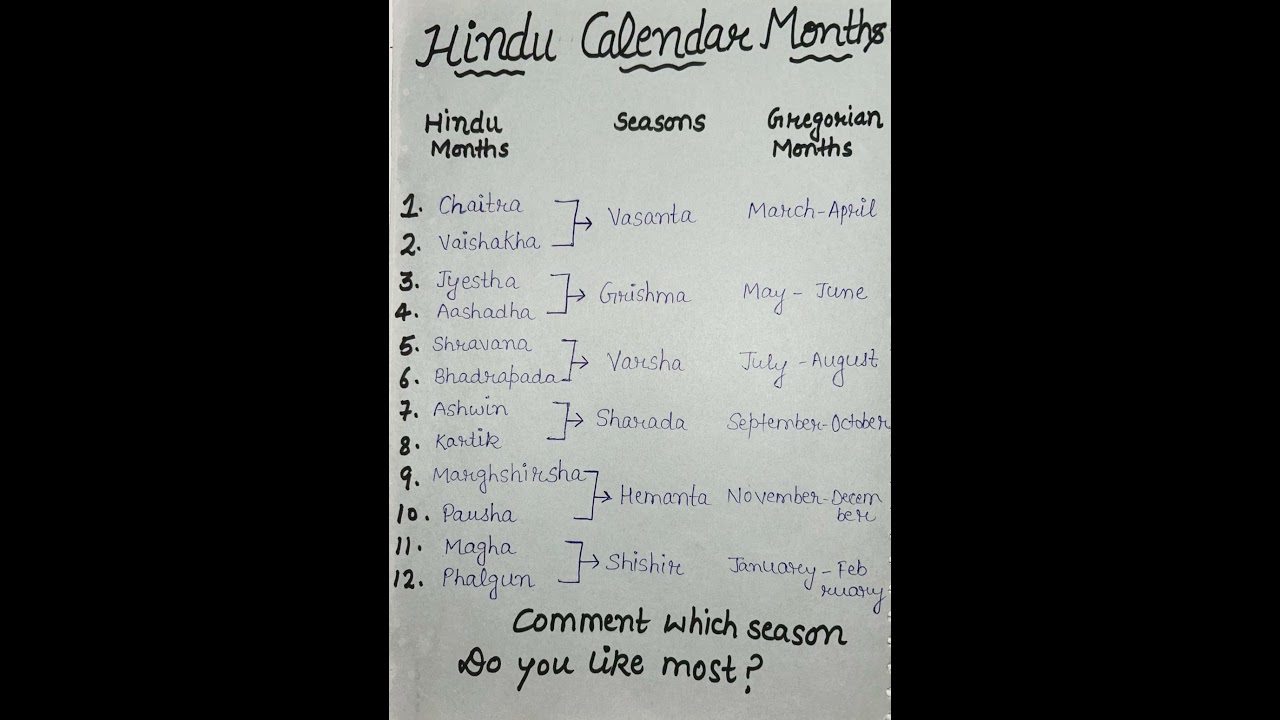 Hindu Calendar Months
Hindu Months Seasons Gregorian Months
1. Chaitra
Vasanta March-April
2. Vaishakha
3. Jyestha
Grishma May - June
4. Aashadha
5. Shravana
Varsha July - August
6. Bhadrapada
7. Ashwin
Sharada September-October
8. Kartik
9. Marghshirsha
Hemanta November-Decem
ber
10. Pausha
11. Magha
Shishir January-Feb
ruary
12. Phalgun
Comment which season
Do you like most?